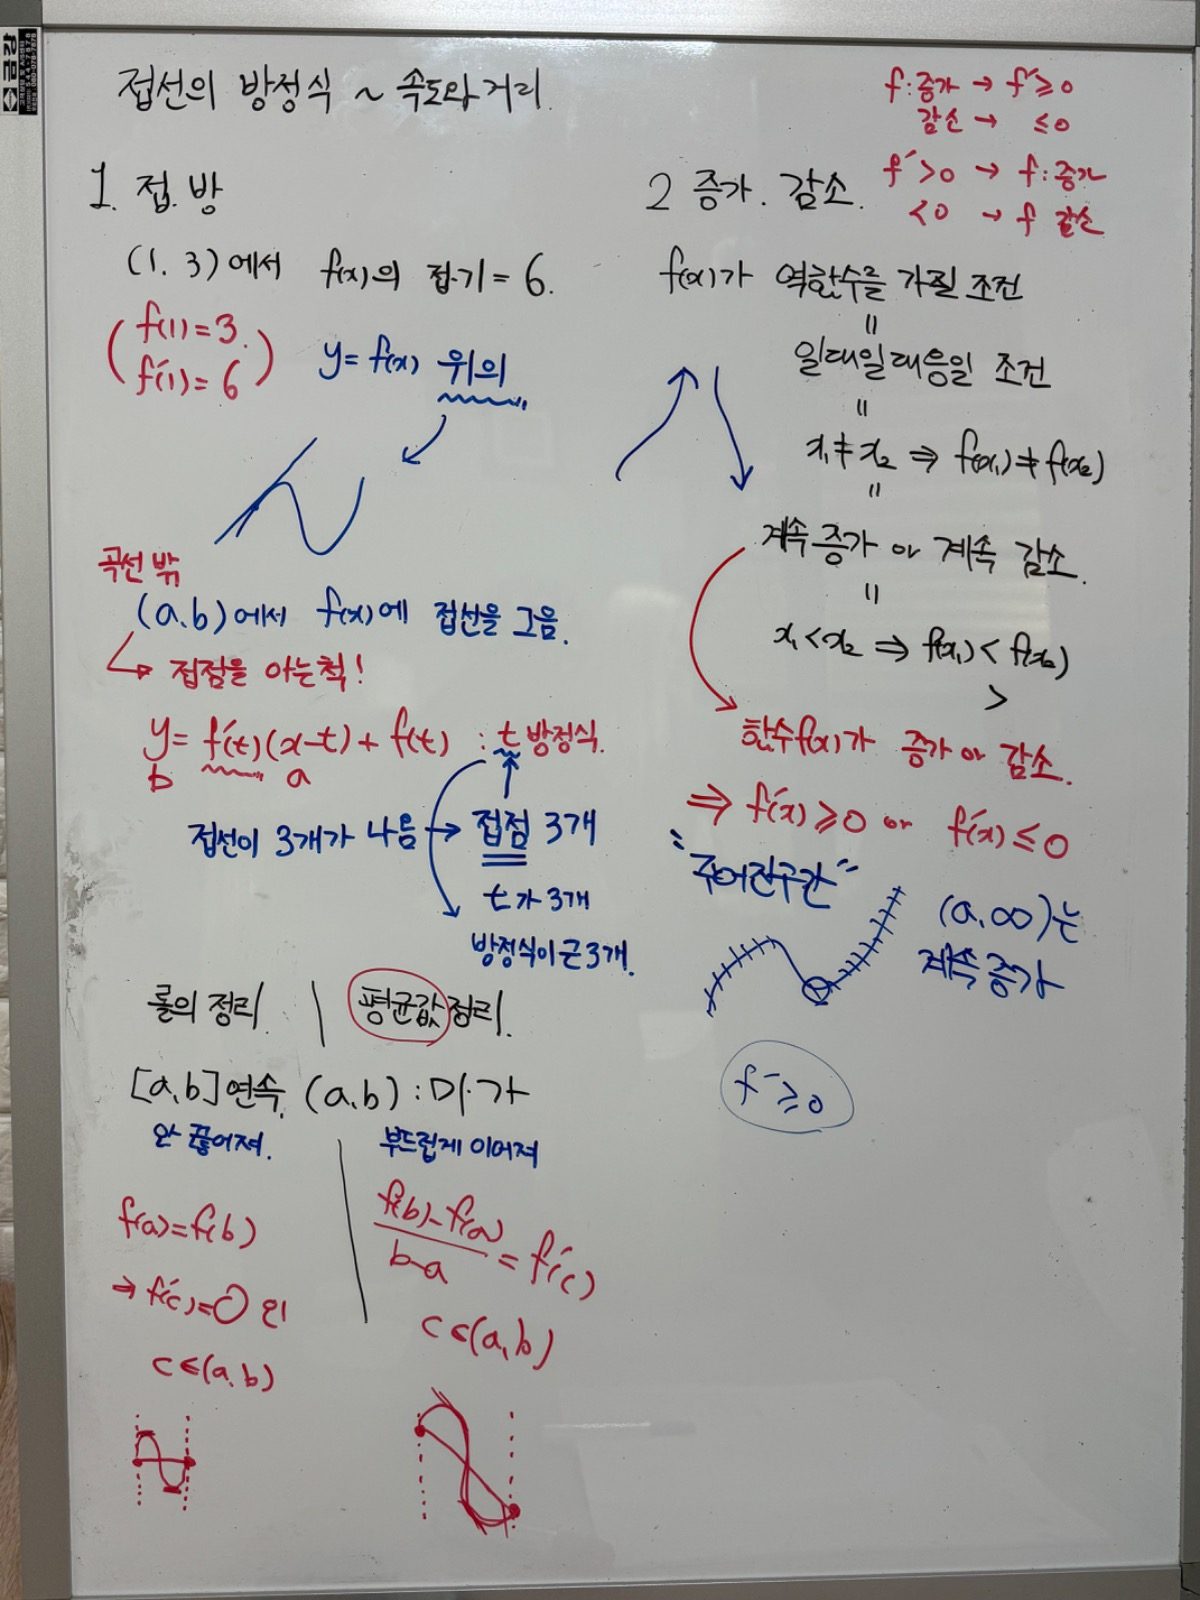 접선의 방정식 ~ 속도와 거리
1. 접.방
(1. 3)에서 f(x)의 접.기 = 6.
( f(1)=3.
f′(1)=6 )
y=f(x) 위의
곡선 밖
(a.b)에서 f(x)에 접선을 그음.
접점을 아는척!
y= f′(t)(x-t)+f(t) : t 방정식.
b a
접선이 3개가 나옴 → 접점 3개
t가 3개
방정식이 근 3개.
롤의 정리. | 평균값 정리.
[a.b]연속. (a.b) : 미.가
안 끊어져. 부드럽게 이어져
f(a)=f(b)
⇒ f′(c)=0 인
c∈(a.b)
f(b)-f(a)
b-a = f′(c)
c∈(a,b)
f:증가 → f′≥0
감소 → ≤0
f′>0 → f:증가
<0 → f 감소
2 증가. 감소.
f(x)가 역함수를 가질 조건
=
일대일대응일 조건
=
x₁≠x₂ ⇒ f(x₁)≠f(x₂)
=
계속 증가 or 계속 감소.
=
x₁<x₂ ⇒ f(x₁)<f(x₂)
>
함수f(x)가 증가 or 감소.
⇒ f′(x)≥0 or f′(x)≤0
"주어진구간"
(a.∞)는
계속 증가
f′≥0